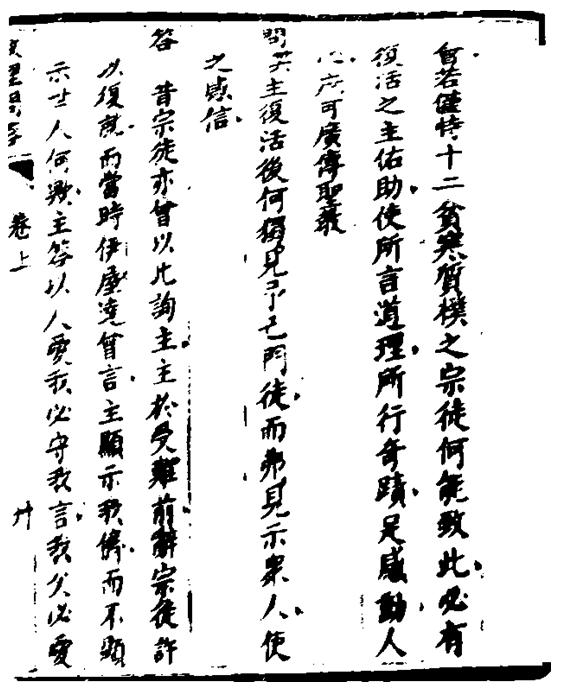 會若僅恃十二貧寒質樸之宗徒何能致此必有
復活之主佑助使所言道理所行奇蹟足感動人
心庶可廣傳聖教
問吾主復活後何獨見示己門徒而弗見示衆人使
之感信
答昔宗徒亦曾以此詢主主於受難前辭宗徒許
以復就而當時伊屋達曾言主顯示我儕而不顯
示世人何歟主答以人愛我必守我言我父必愛
卷上
廾